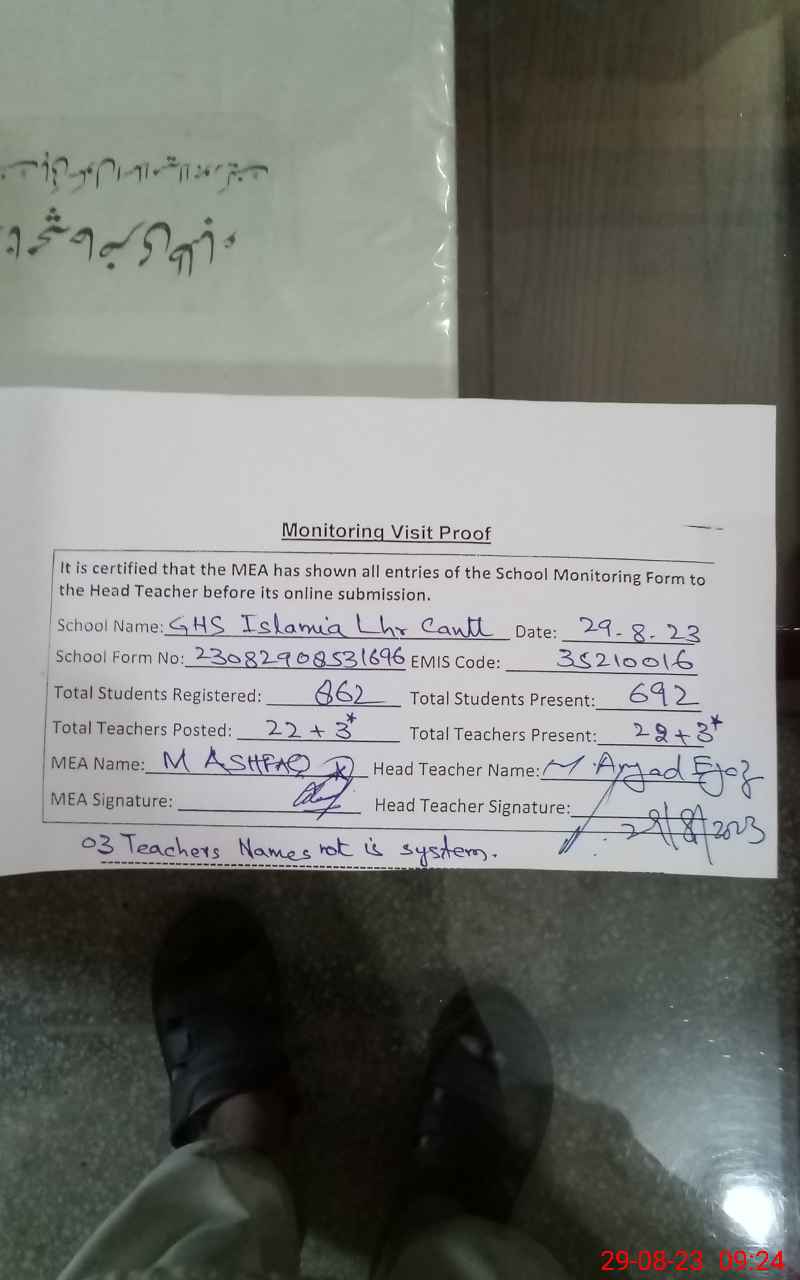 Monitoring Visit Proof
It is certified that the MEA has shown all entries of the School Monitoring Form to
the Head Teacher before its online submission.
School Name: GHS Islamia Lhr Cantt Date: 29-8-23
School Form No: 23082908531696 EMIS Code: 35210016
Total Students Registered: 862 Total Students Present: 692
Total Teachers Posted: 22 + 3* Total Teachers Present: 22 + 3*
MEA Name: M ASHFAQ Head Teacher Name: M. Amjad Ejaz
MEA Signature: Head Teacher Signature:
29/8/2023
03 Teachers Names not is system.
29-08-23 09:24